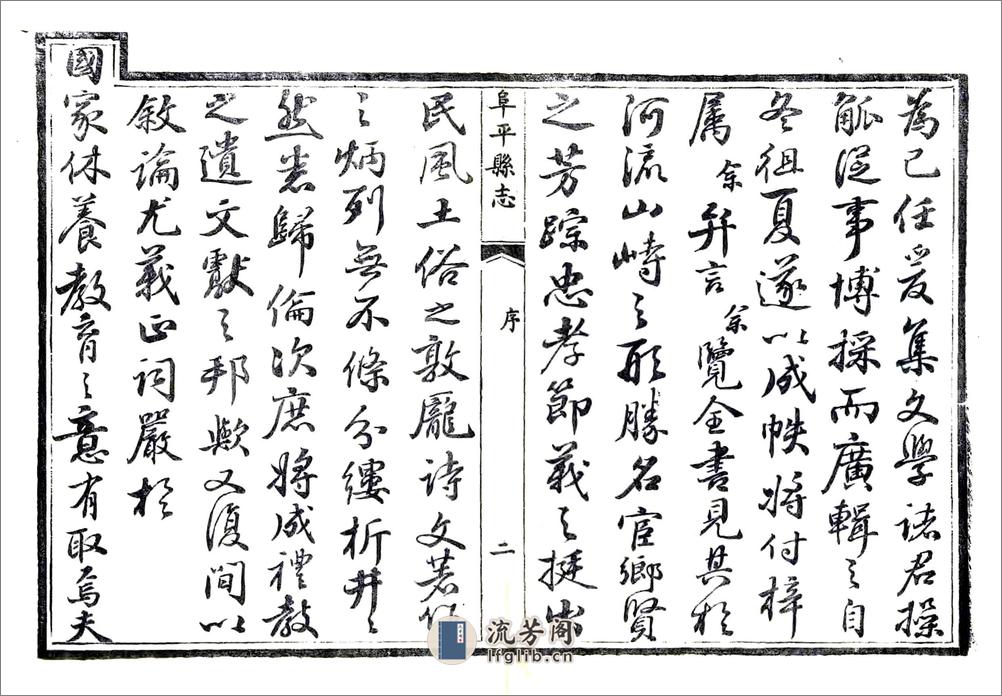 為已任爰集文學諸君操
觚從事博採而廣輯之自
冬徂夏遂以成帙將付梓
属余弁言余覽全書見其於
河流山峙之形勝名宦鄉賢
之芳踪忠孝節義之挺出
阜平縣志
序
二
民風土俗之敦龎詩文著作
之炳列無不條分縷析井之
然悉歸倫次庶將成禮教
之遺文獻之邦歟又復間以
敘論尤義正詞嚴於
國家休養教育之意有取焉夫
流芳阁
lfglib.cn